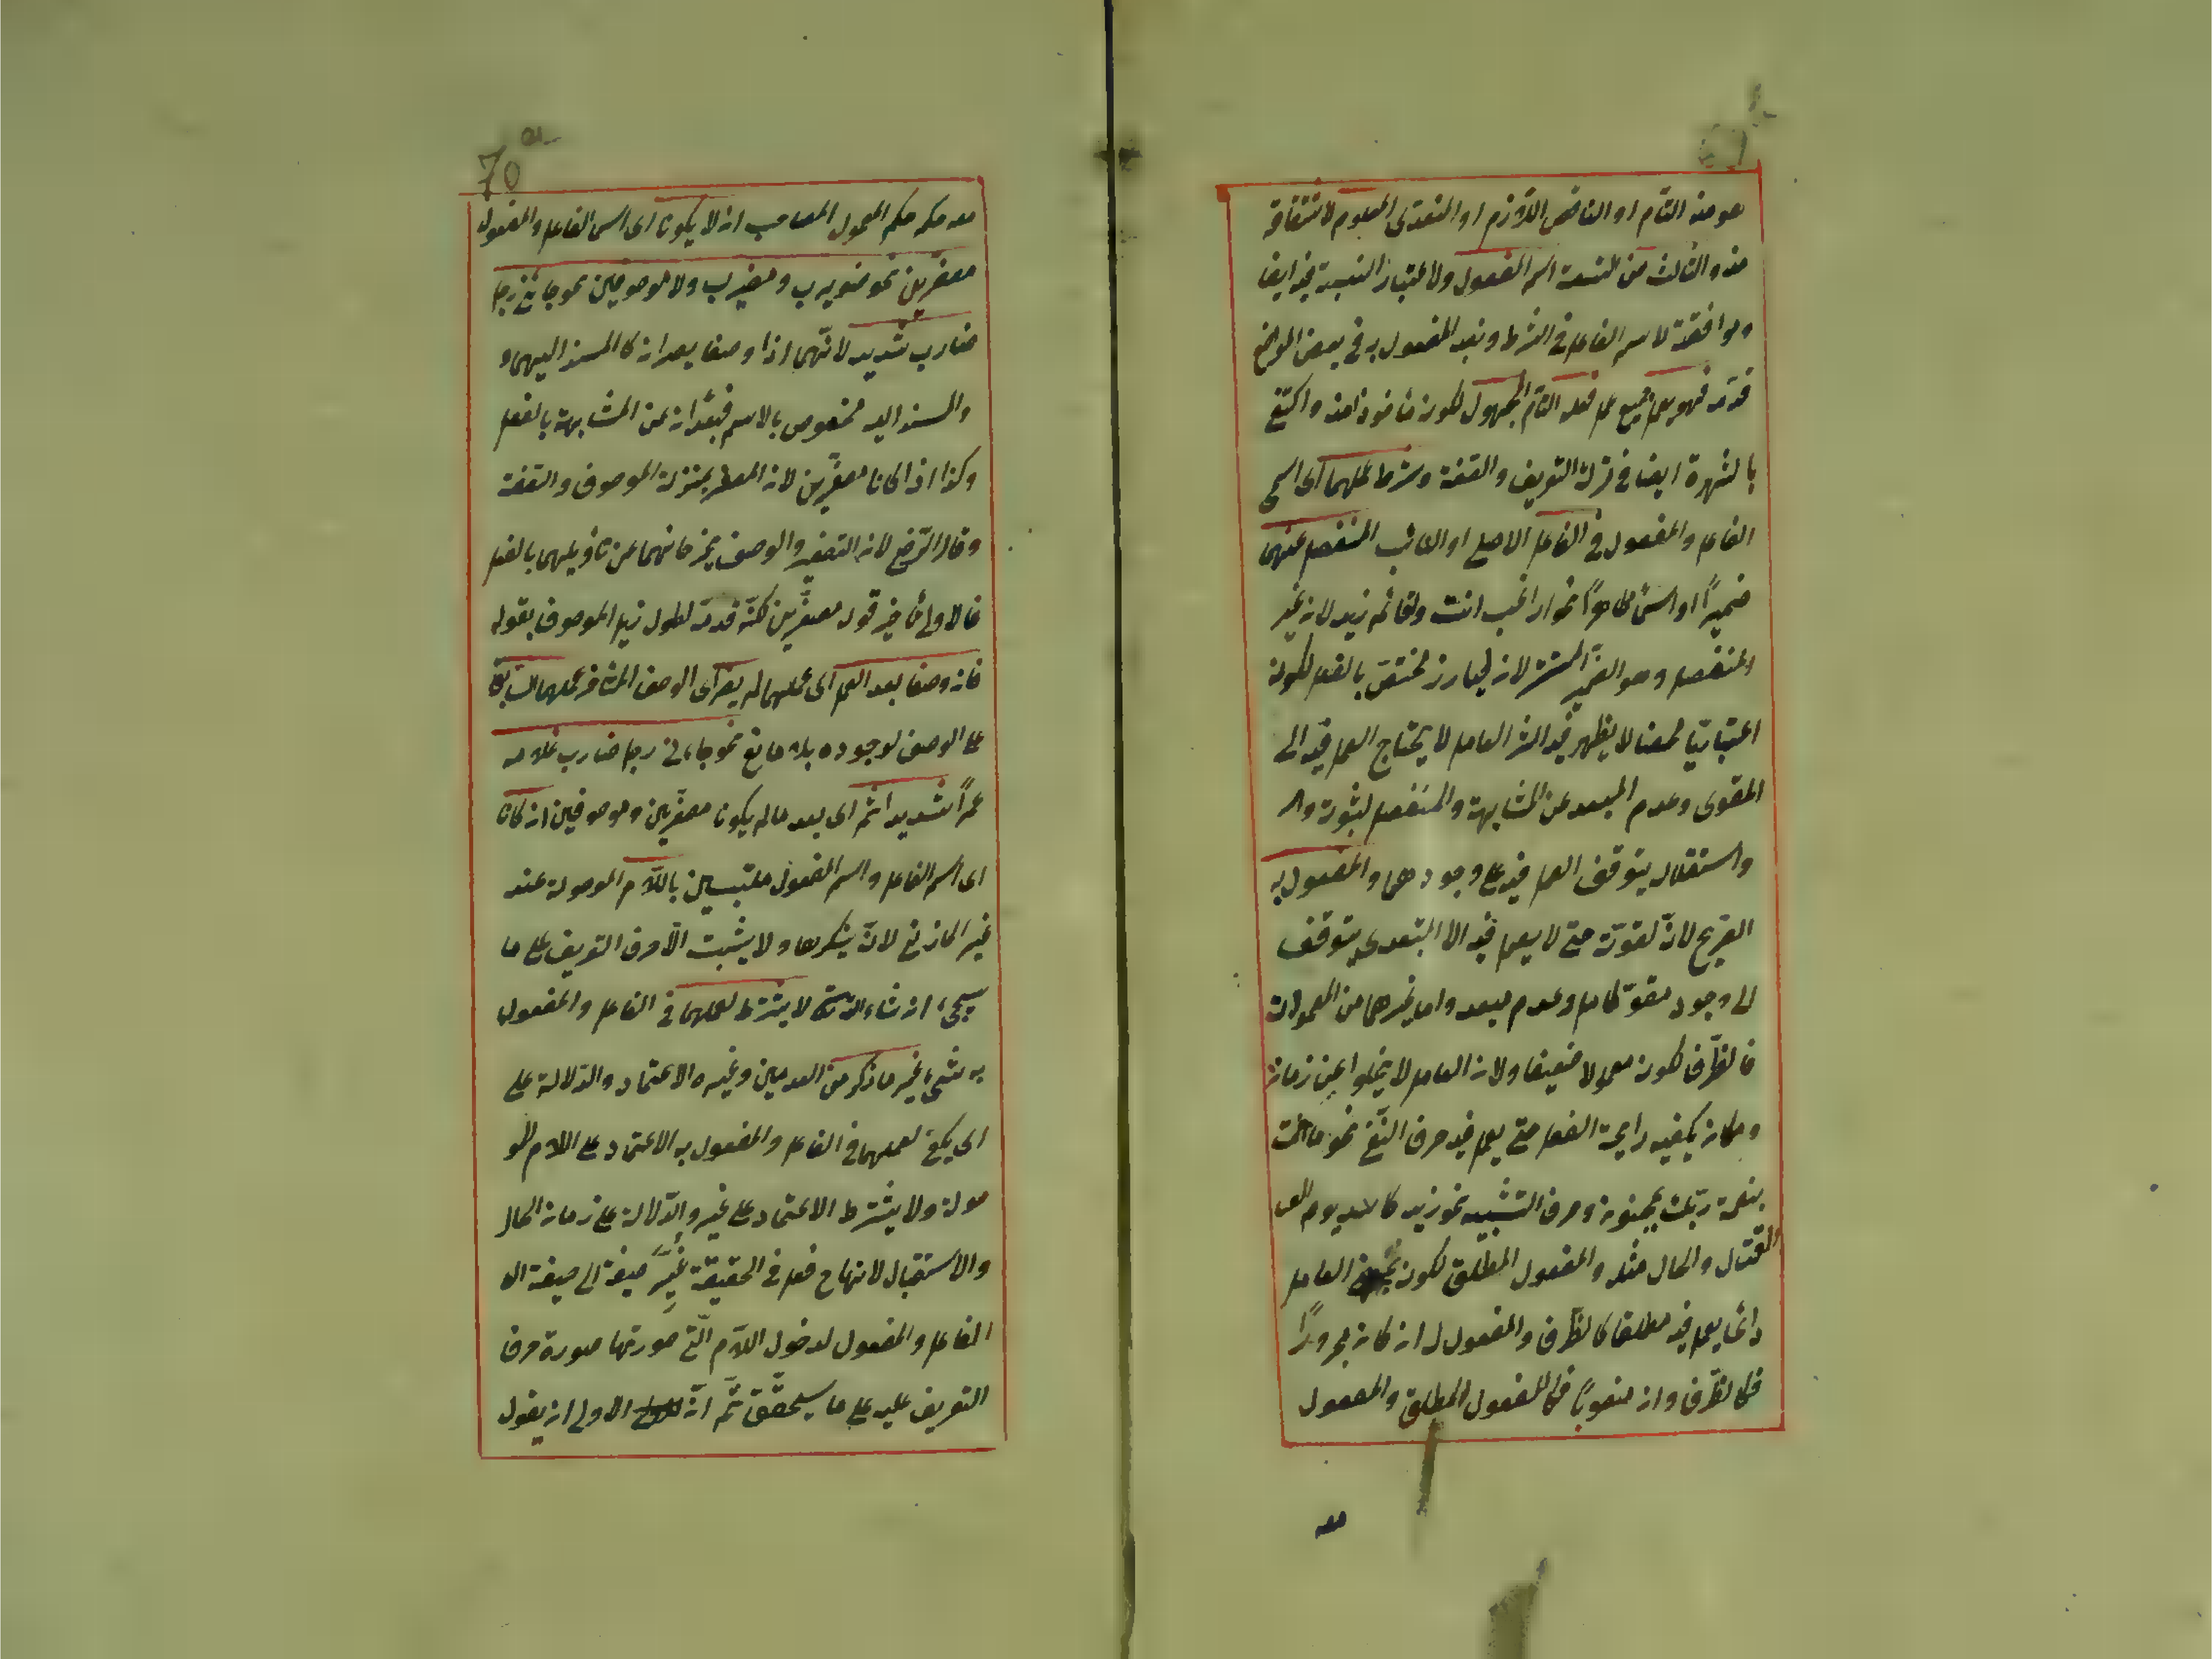 هو منه التام او الناقص اللازم او المتعدى المعلوم لاشتقاقه
منه والثالث من التسعة اسم المفعول ولاعتبار النسبة فيه ايضا
وموافقته لاسم الفاعل في الشرط ونيد المفعول به في بعض المواضع
قدمه فهو يعمل عمل فعله التام المجهول لكونه مأخوذا منه واكتفى
بالشهرة ايضا في ترك التعريف والصفة وشرط عملهما اى اسمى
الفاعل والمفعول في الفاعل الاصلى او النائب المنفصل عنهما
ضميرًا او اسمًا ظاهرًا نحو اراغب انت واقائم زيد لان غير
المنفصل وهو الضمير المستتر لا يبارز مختص بالفعل لكونه
اعتباريا محضا لا يظهر فيه اثر العامل لا يحتاج العمل فيه الى
المقوى وعدم المبعد عن المشابهة والمنفصل لثبوته وا
واستقلاله يتوقف العمل فيه على وجودهما والمفعول به
الصريح لان لقوته حتى لا يعمل فيه الا المتعدى يتوقف
الى وجود مقو كامل وعدم مبعد واما غيرهما من المعمولات
فالظرف لكونه معمولا ضعيفا ولان العامل لا يخلوا عن زمان
ومكان يكفيه رايحة الفعل حتى يعمل فيه حرف النفى نحو ما انت
بنعمة ربك بمجنون وحرف التشبيه نحو زيد كالاسد يوم
القتال والحال مثله والمفعول المطلق لكونه العامل
دائما يعمل فيه مطلقا كالظرف والمفعول له ان كان مجرورًا
فكالظرف وان منصوبًا فكالمفعول المطلق والمفعول
معه
70
معه حكمه حكم المعمول المصاحب ان لا يكونا اى اسمى الفاعل والمفعول
مصغرين نحو ضويرب ومضيرب ولا موصوفين نحو جائنى رجل
ضارب شديد لانهما اذا وصفا يصيران كالمسند اليهما و
والمسند اليه مخصوص بالاسم فيبعدان عن المشابهة بالفعل
وكذا اذا كانا مصغرين لان المصغر بمنزلة الموصوف والصفة
وقال الرضى لان التصغير والوصف يخرجانهما عن تأويلهما بالفعل
فالاولى تأخير قوله مصغرين لكنه قدمه لطول ذيل الموصوف بقوله
فان وصفا بعد العمل اى عملهما لم يضر اى الوصف المتأخر عملهما السابق
على الوصف لوجوده بلا مانع نحو جاءنى رجل ضارب غلامه
عمرًا شديد ثم اى بعد ما لم يكونا مصغرين وموصوفين ان كانا
اى اسم الفاعل واسم المفعول ملتبسين باللام الموصولة عند
غير المازنى لانه ينكرها ولا يثبت الا حرف التعريف على ما
سيجئ ان شاء الله لا يشترط لعملهما في الفاعل والمفعول
به شئ غير ما ذكر من العدمين وغيره الاعتماد والدلالة على
اى يكفى لعملهما في الفاعل والمفعول به الاعتماد على اللام المو
صولة ولا يشترط الاعتماد على غير والدلالة على زمان الحال
والاستقبال لانهما ح فعل في الحقيقة غير صيغة الى صيغة
الفاعل والمفعول لدخول اللام التى صورتها صورة حرف
التعريف عليه على ما سيحقق ثم انه الاولى ان يقول